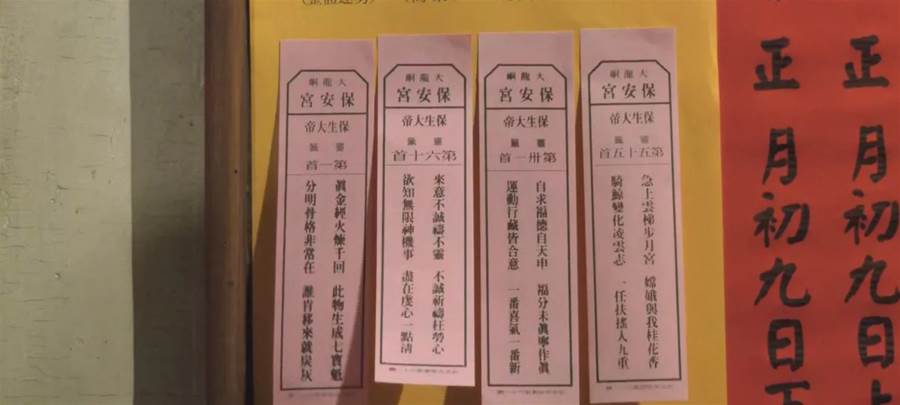 正月初九日上
正月初九日下
大龍峒
保安宮
保生大帝
靈籤
第五十五首
急上雲梯步月宮 嫦娥與我桂花香
騎鯨變化凌雲志 一任扶搖入九重
大龍峒
保安宮
保生大帝
靈籤
第卅一首
自求福德自天申 福分未眞寧作眞
運動行藏皆合意 一番喜氣一番新
大龍峒
保安宮
保生大帝
靈籤
第六十首
來意不誠禱不靈 不誠祈禱枉勞心
欲知無限神機事 盡在虔心一點清
大龍峒
保安宮
保生大帝
靈籤
第一首
眞金經火煉千回 此物生成七寶魁
分明骨格非常在 誰肯移來戲炭灰